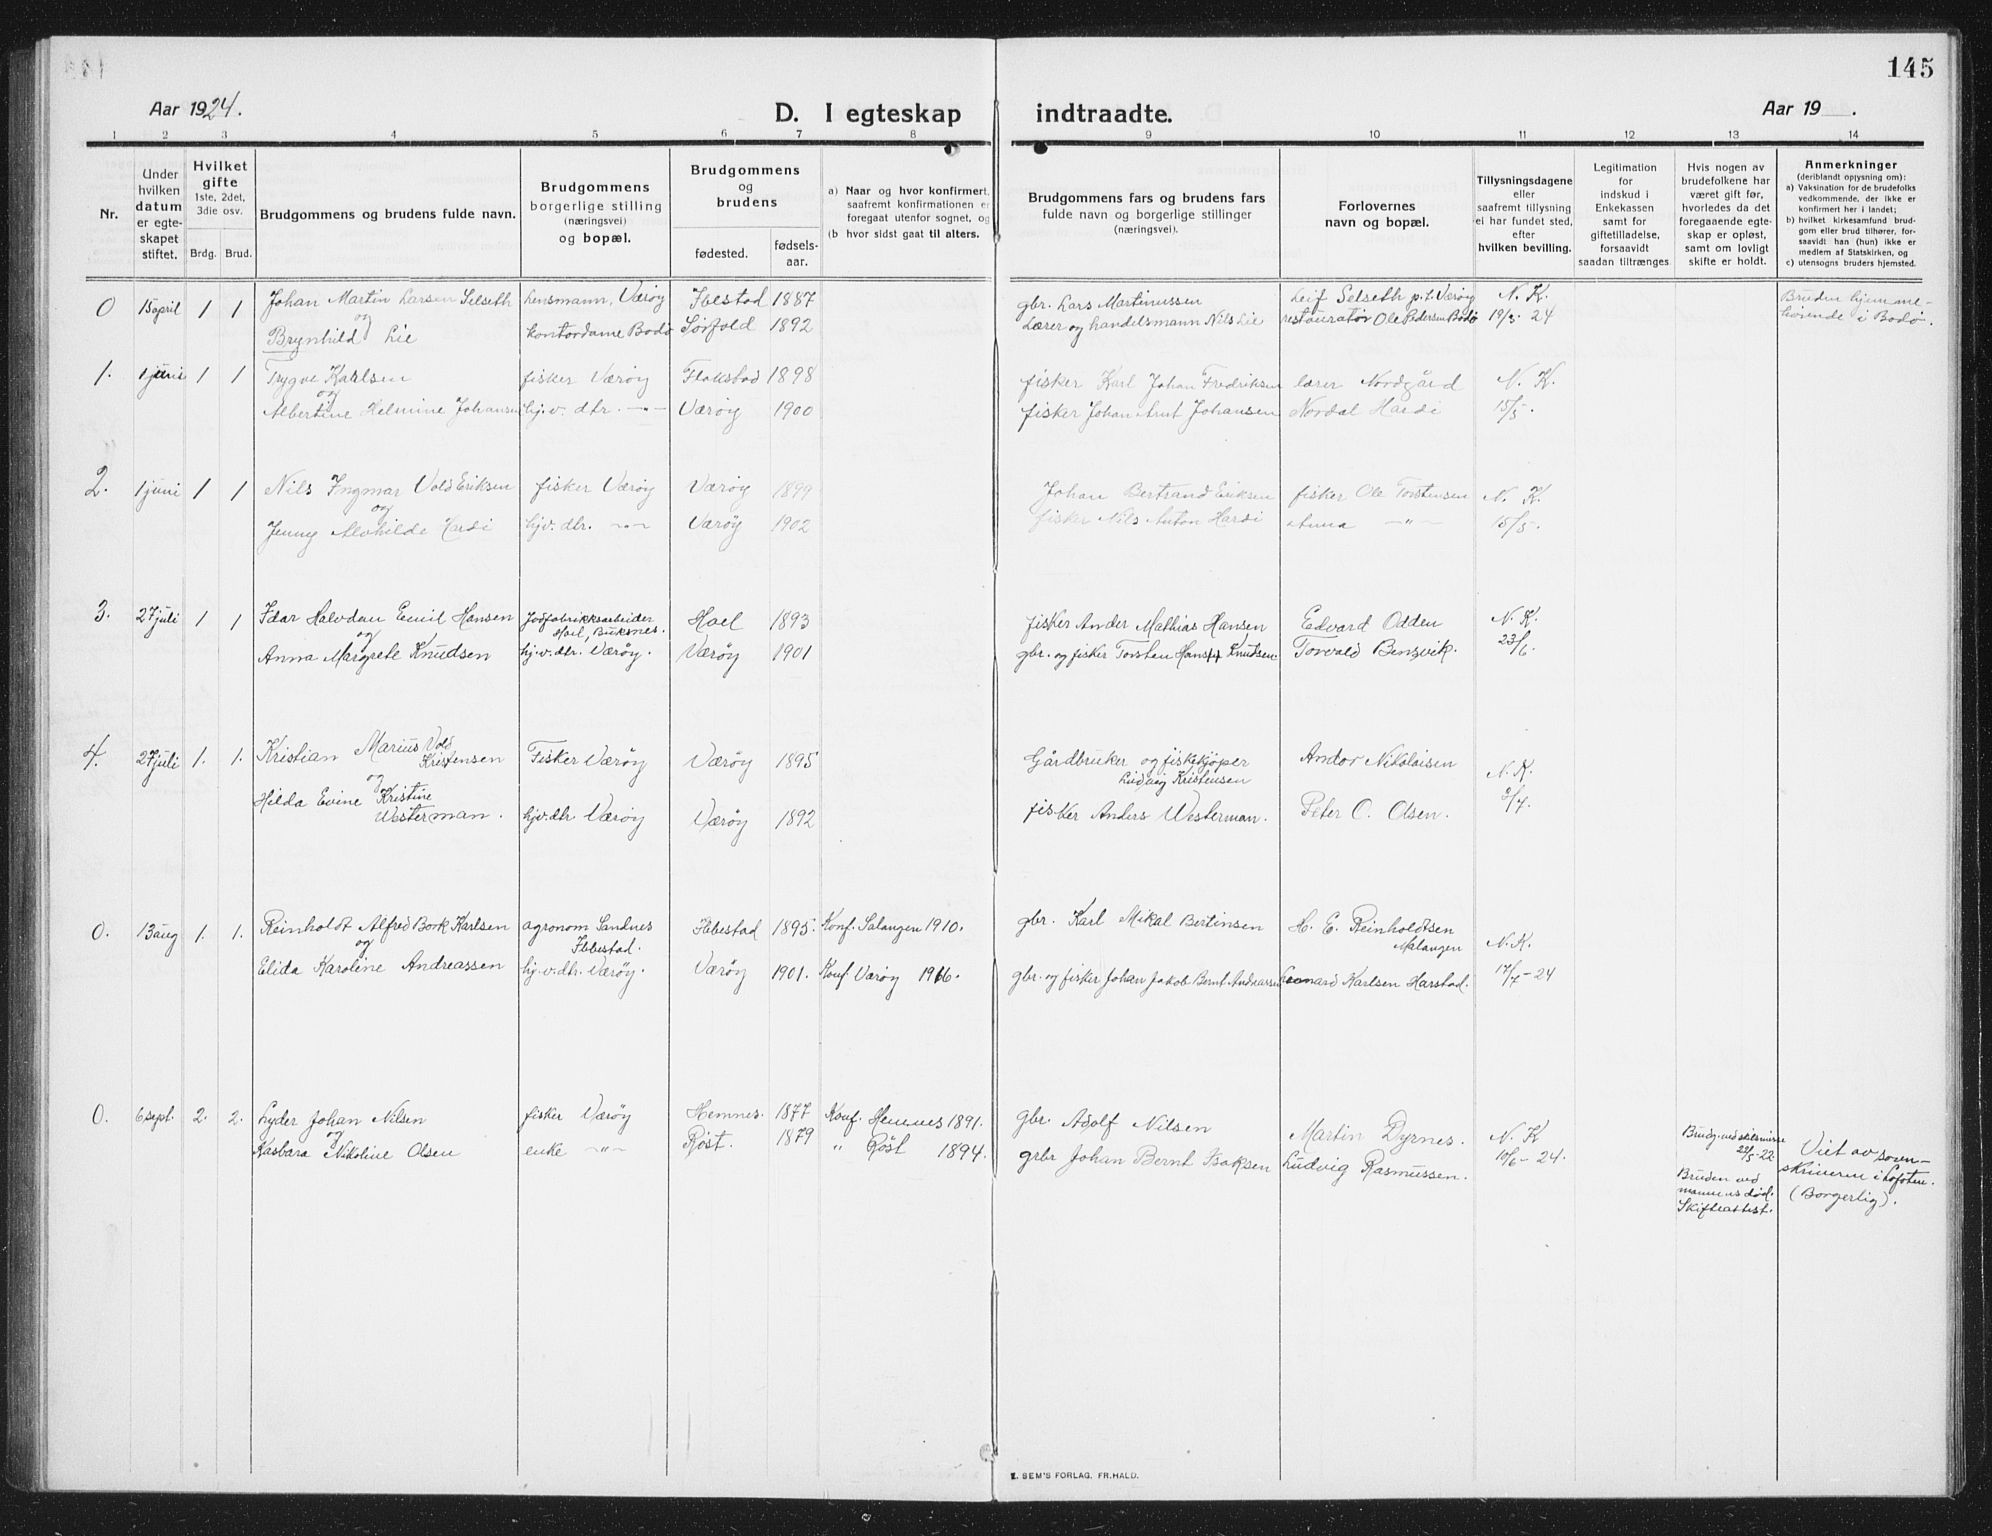 145
Aar 1924.
D. I egteskap indtraadte.
Aar 19 .
1 2 3 4 5 6 7 8 9 10 11 12 13 14
Nr.
Under hvilken datum er egteskapet stiftet.
Hvilket gifte 1ste, 2det, 3die osv.
Brdg. Brud.
Brudgommens og brudens fulde navn.
Brudgommens borgerlige stilling (næringsvei) og bopæl.
Brudgommens og brudens
fødested.
fødsels-aar.
a) Naar og hvor konfirmert, saafremt konfirmationen er foregaat utenfor sognet, og
(b hvor sidst gaat til alters.
Brudgommens fars og brudens fars fulde navn og borgerlige stillinger (næringsvei).
Forlovernes navn og bopæl.
Tillysningsdagene eller saafremt tillysning ei har fundet sted, efter hvilken bevilling.
Legitimation for indskud i Enkekassen samt for giftetilladelse, forsaavidt saadan tiltrænges
Hvis nogen av brudefolkene har været gift før, hvorledes da det foregaaende egteskap er opløst, samt om lovligt skifte er holdt.
Anmerkninger (deriblandt opjysning om):
a) Vaksination for de brudefolks vedkommende, der ikke er konfirmert her i landet;
b) hvilket kirkesamfund brudgom eller brud tilhører, forsaavidt han (hun) ikke er medlem af Statskirken, og
c) utensogns bruders hjemsted.
0 15 april 1 1 Johan Martin Larsen Selseth Lensmann, Værøy Ibestad 1887 gbr. Lars Martinussen Leif Selseth p.t. Værøy N. K. Bruden hjemme-
og
Brynhild Lie kontordame Bodø Sørfold 1892 Lærer og handelsmann Nils Lie restauratør Ole Pedersen Bodø 19/3 - 24 hørende i Bodø.
1. 1 juni 1 1 Trygve Karlsen fisker Værøy Flakstad 1898 fisker Karl Johan Fredriksen lærer Nordgård N. K.
og
Albertine Helmine Johansen hj.v. dtr. -"- Værøy 1900 fisker Johan Arnt Johansen Nordal Hardi 15/5.
2. 1 juni 1 1 Nils Ingmar Vold Eriksen fisker Værøy Værøy 1899 Johan Bertrand Eriksen fisker Ole Torstensen N. K.
og
Jenny Alvhilde Hardi hj.v. dtr. -"- Værøy 1902 fisker Nils Anton Hardi Anna -"- 15/5.
3. 27 juli 1 1 Idar Halvdan Emil Hansen Jodfabrikksarbeider Hoel, Buksnes. Hoel 1893 fisker Ander Mathias Hansen Edvard Odden N. K.
og
Anna Margrete Knudsen hj.v. dtr. Værøy. Værøy 1901 gbr. og fisker Torsten Hans Knutsen Torvald Bensvik. 23/6.
4. 27 juli 1. 1. Kristian Marius Vold Kristensen Fisker Værøy Værøy 1895 Gårdbruker og fiskekjøper Ludvig Kristensen Andor Nikolaisen N. K.
og
Hilda Evine Kristine Westerman. hjv. dtr Værøy Værøy 1892 fisker Anders Westerman. Peter C. Olsen.
0. 13 aug 1. 1. Reinholdt Alfred Bork Karlsen agronom Sandnes Ibbestad. Ibbestad 1895. Konf. Salangen 1910. gbr. Karl Mikal Bertinsen H. E. Reinholdtsen Malangen N. K.
og
Elida Karoline Andreassen hj.v. dtr. Værøy. Værøy 1901. Konf. Værøy 1916. gbr. og fisker Johan Jakob Bernt Andreassen Leonard Karlsen Harstad. 17/7 - 24
0. 6 sept. 2. 2. Lyder Johan Nilsen fisker Værøy Hemnes. 1877 Konf. Hemnes 1891. gbr. Adolf Nilsen Martin Dyrnes. N. K Brudg. ved skilsmisse 22/5-22 Viet av soren-
og
Kasbara Nikoline Olsen enke -"- Røst. 1879 " Røst 1894. grbr Johan Bernt Isaksen Ludvig Rasmussen. 10/6 - 24. Bruden ved mannens død. Skifteattest. skriveren i Lofoten. (Borgerlig).
E. SEM'S FORLAG, FR.HALD.